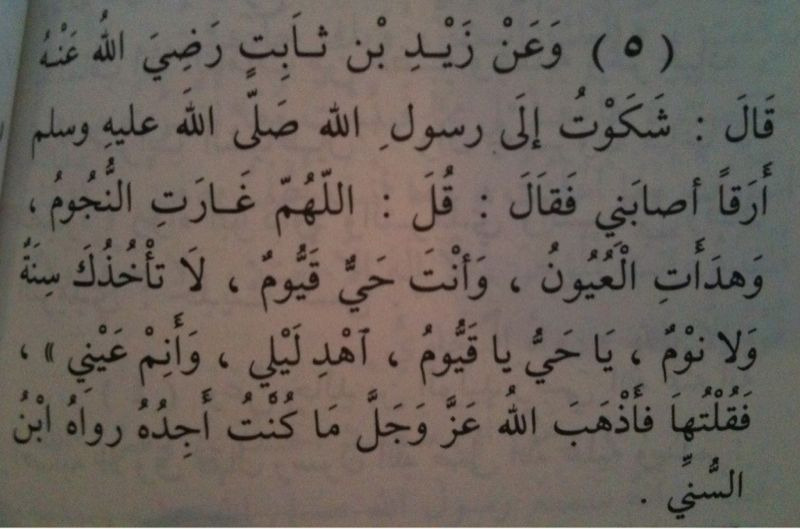 (٥) وَعَنْ زَيْـدِ بْن ثـاَبِتٍ رَضِيَ اللهُ عَنْـهُ
قَالَ : شَكَوْتُ إلَى رسول ِ الله صَلّى اللهَ عليهِ وسلم
أَرَقاً أصابَني فَقاَلَ : قُلَ : اللّهُمّ غَـارَتِ النُّجُومُ ،
وَهدَأَتِ الْعُيُونُ ، وَأنْتَ حَيٌّ قَيُّومٌ ، لَا تأْخُذُكَ سِنَةٌ
وَلا نوْمٌ ، يَا حَيُّ يا قَيُّومُ ، آهْدِ لَيْلي ، وَأَنِمْ عَيْنيِ » ،
فَقُلْتُهاَ فأَذْهَبَ اللهُ عَزَّ وَجَلَّ مَا كُنْتُ أَجِدُهُ رواهُ ابْنُ
السُّنيِّ .